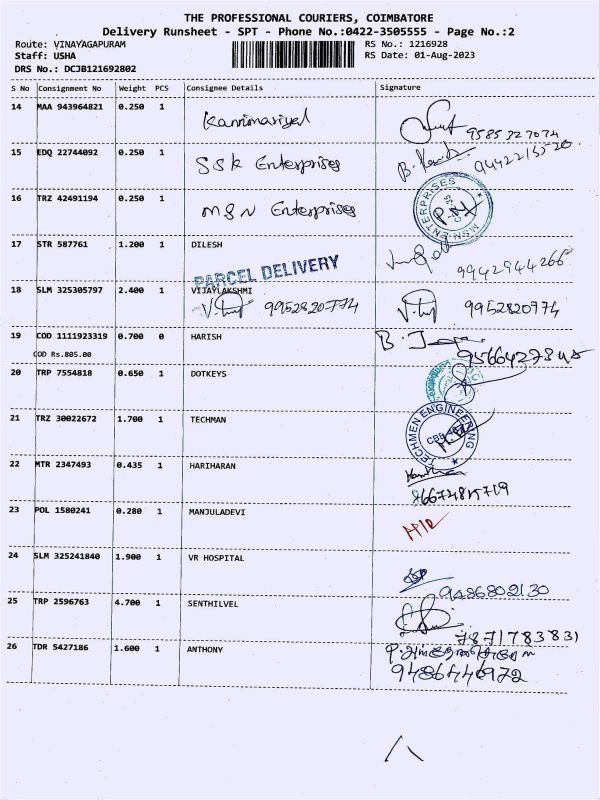 THE PROFESSIONAL COURIERS, COIMBATORE
Delivery Runsheet - SPT - Phone No.:0422-3505555 - Page No.:2
Route: VINAYAGAPURAM RS No.: 1216928
Staff: USHA RS Date: 01-Aug-2023
DRS No.: DCJB121692802
S No Consignment No Weight PCS Consignee Details Signature
14 MAA 943964821 0.250 1 Kannimariyal
9585327074
15 EDQ 22744092 0.250 1 SSK Enterprises
16 TRZ 42491194 0.250 1 MSN Enterprises
MSN ENTERPRISES
17 STR 587761 1.200 1 DILESH 9942944266
PARCEL DELIVERY
18 SLM 325305797 2.400 1 VIJAYLAKSHMI
9952820774 9952820774
19 COD 1111923319 0.700 0 HARISH
COD Rs.805.00
20 TRP 7554818 0.650 1 DOTKEYS
21 TRZ 30022672 1.700 1 TECHMAN
TECHMEN ENGINEERING
22 MTR 2347493 0.435 1 HARIHARAN
23 POL 1580241 0.280 1 MANJULADEVI
24 SLM 325241840 1.900 1 VR HOSPITAL
9486802130
25 TRP 2596763 4.700 1 SENTHILVEL
7871783831
26 TDR 5427186 1.600 1 ANTHONY
9486446972